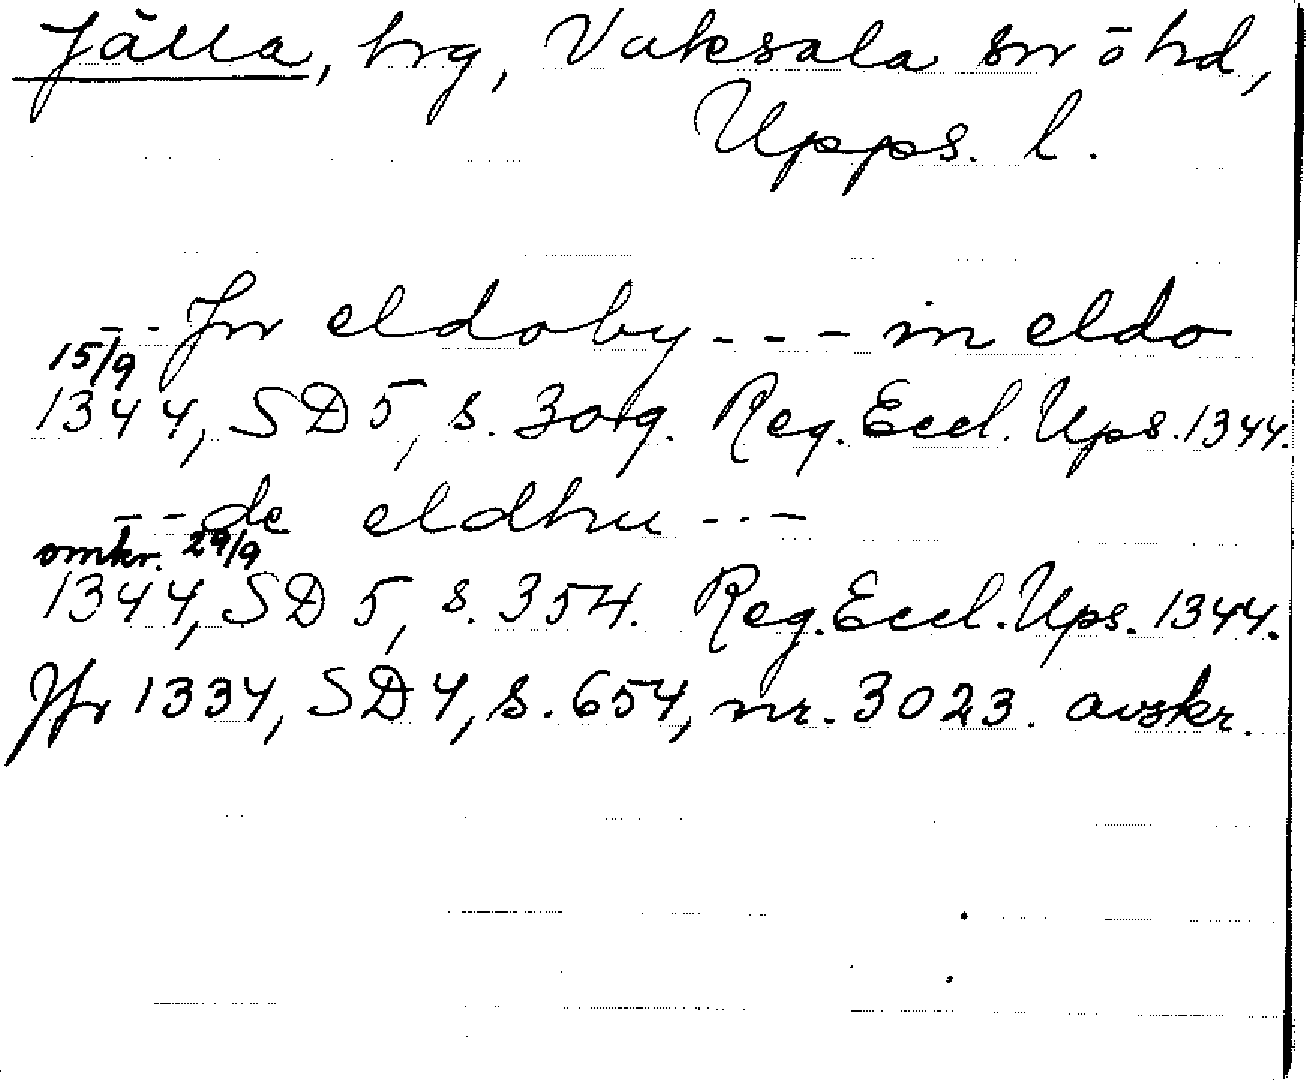 Jälla, hrg, Vaksala sn o hd,
Upps. l.
- - Jn eldoby - - - in eldo
15/9
1344, SD 5, s. 304. Reg. Eccl. Ups. 1344.
- - de eldhru - - -
omkr. 29/9
1344, SD 5, s. 354. Reg. Eccl. Ups. 1344.
Jfr 1334, SD 4, s. 654, nr. 3023. avskr.